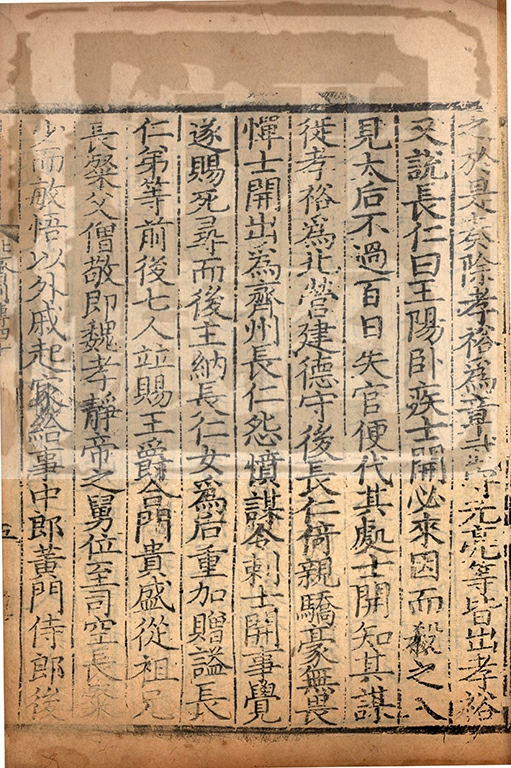 之於是奏除孝裕為章武郡守元亮等皆出孝裕
又說長仁曰王陽臥疾士開必來因而殺之入
見太后不過百日失官便代其處士開知其謀
徙孝裕為北營建德守後長仁倚親驕豪無畏
憚士開出為齊州長仁怨憤謀令刺士開事覺
遂賜死尋而後主納長仁女為后重加贈謚長
仁弟等前後七人並賜王爵合門貴盛從祖兄
長粲父僧敬即魏孝靜帝之舅位至司空長粲
少而敏悟以外戚起家給事中郎黃門侍郎後
五